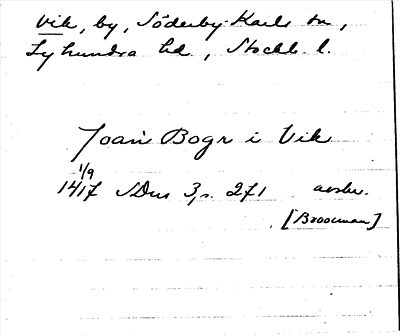 Vik, by, Söderby-Karls sn,
Lyhundra hd, Stockh. l.
Joan Bogr i Vik
1/9
1417 SDns 3, s. 271 avskr.
[Brocman]